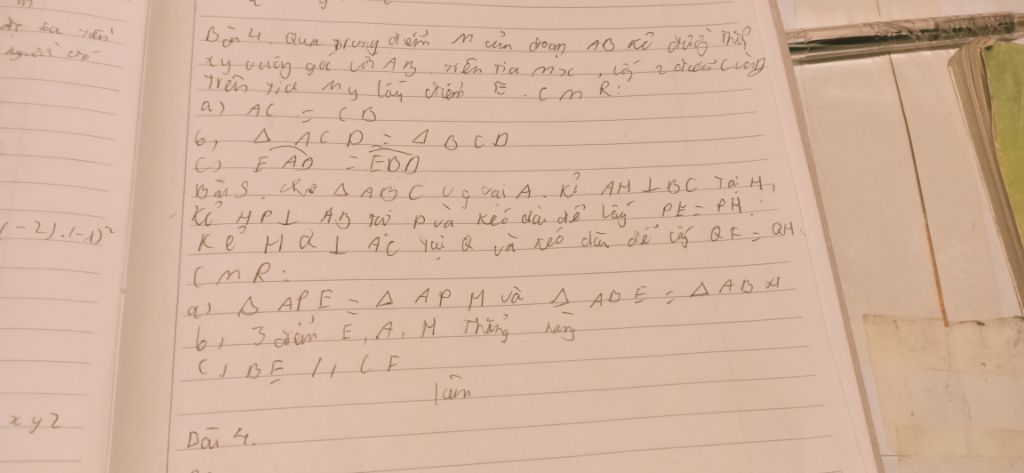 Bài 4. Qua trung điểm M của đoạn AB kẻ đường thẳng
xy vuông góc với AB. trên tia Mx, lấy 2 điểm C và D
trên tia My lấy điểm E. CMR:
a) AC = CB
b, Δ ACD = Δ BCD
c) EAD = EBD
Bài 5. cho Δ ABC vg tại A. Kẻ AH ⊥ BC tại H,
Kẻ HP ⊥ AB tại P và kéo dài để lấy PE = PH.
Kẻ HQ ⊥ AC tại Q và kéo dài để lấy QF = QH.
CMR:
a) Δ APE = Δ APH và Δ ABE = Δ ABH
b, 3 điểm E, A, H thẳng hàng
c, BE // CF
làm
Bài 4.
(-2).(-1)²
xyz
người